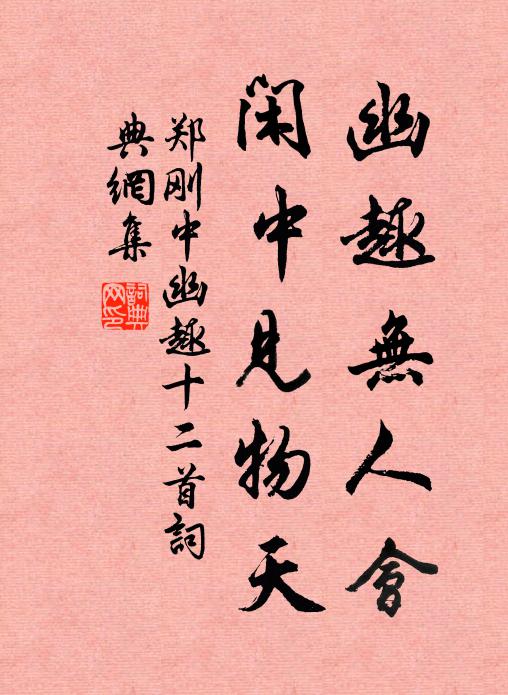 幽趣無人會
闲中見物天
郑刚中幽趣十二首詞
典網集
詞典
网印